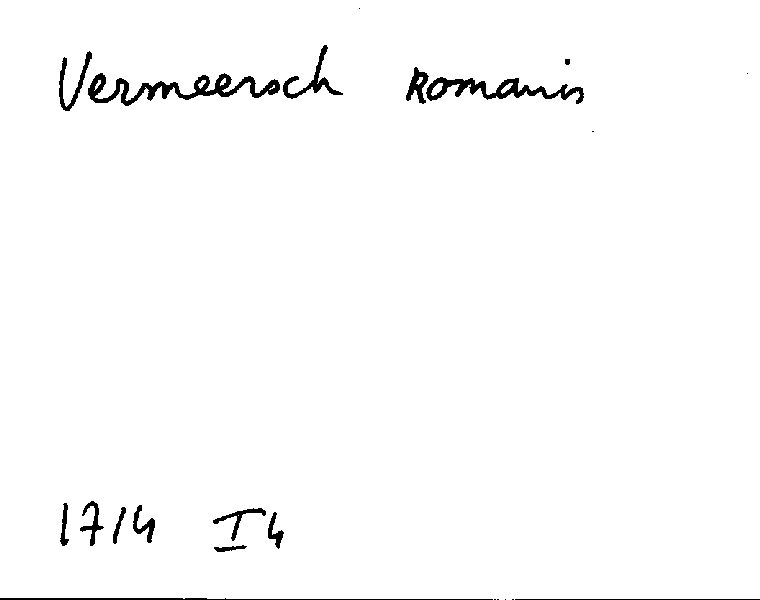 Vermeersch Romanis
1714 I4